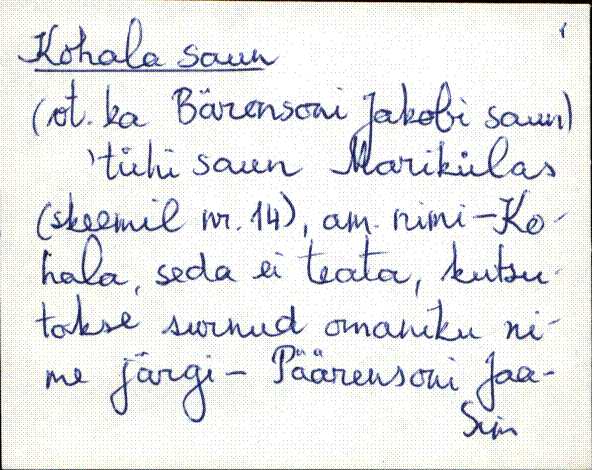 Kohala saun
(vt. ka Bärensoni Jakobi saun)
'tühi saun Marikülas
(skeemil nr. 14), am. nimi - Ko-
hala, seda ei teata, kutsu-
takse surnud omaniku ni-
me järgi - Päärensoni Jaa-